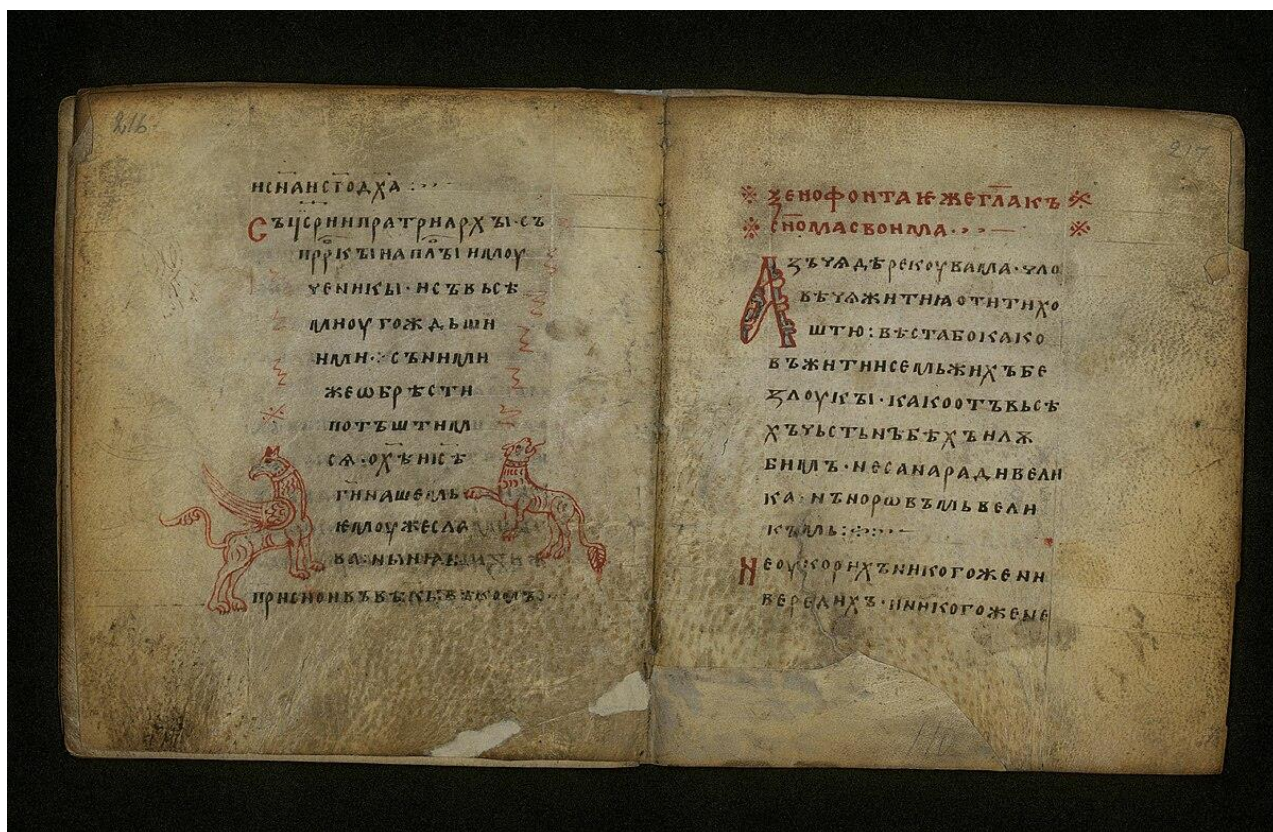 216
исн҃аист҃одх҃а :···
Съцс҃рниипратриархꙑ·съ
прр҃кꙑнапл҃ꙑ имоу
ченикꙑ·исъвьсѣ
мноугождьши
ими·:·съними
жеѡбрѣсти
потъштим
сѧ·ох҃ѣиісѣ
г҃инашемь
ѥмоужесла
ва·нꙑнѣ
присноивъвѣкꙑвѣкомъ
217
ꙁенофонтаѥжегл҃акъ
сн҃омасвоима···—
Аꙁъчѧдѣрекоувама·чло
вѣчѧжитиꙗотитихо
штю:вѣстабокако
въжитиисемьжихъбе
ꙁлоукꙑ·какоотъвьсѣ
хъчьстьнъбѣхъилѫ
бимъ·несанарадивели
ка·нънорѡвъмьвели
къмь:·:··—
Неоукорихъникогожени
верелихъ·ниникогожеѥ